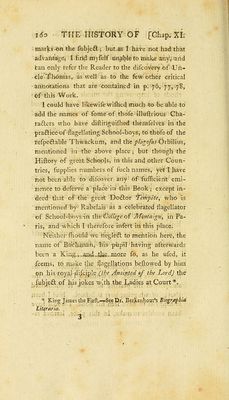 160 THE HISTORY OF [Chap. XI.
marks on the subject; but as I have not had that
advantage, I find myself unable to make any, and
can only refer the Reader to the discovery of Un-
cle Thomas, as well as to the few other critical
annotations that are contained in p. 76, 77, 78,
of this Work.
I could have likewise wished much to be able to
add the names of some of those illustrious Cha-
racters who have distinguished themselves in the
practice of flagellating School-boys, to those of the
respectable Thwackum, and the plagosus Orbilius,
mentioned in the above place; but though the
History of great Schools, in this and other Coun-
tries, supplies numbers of such names, yet I have
not been able to discover any of sufficient emi-
nence to deserve a place in this Book; except in-
deed that of the great Doctor Tempête, who is
mentioned by Rabelais as a celebrated flagellator
of School-boys in the College of Montaigu, in Pa-
ris, and which I therefore insert in this place.
Neither should we neglect to mention here, the
name of Buchanan, his pupil having afterwards
been a King, and the more so, as he used, it
seems, to make the flagellations bestowed by him
on his royal disciple (the Anointed of the Lord) the
subject of his jokes with the Ladies at Court *.
* King James the First.—See Dr. Berkenhout's Biographia
Literaria.
3